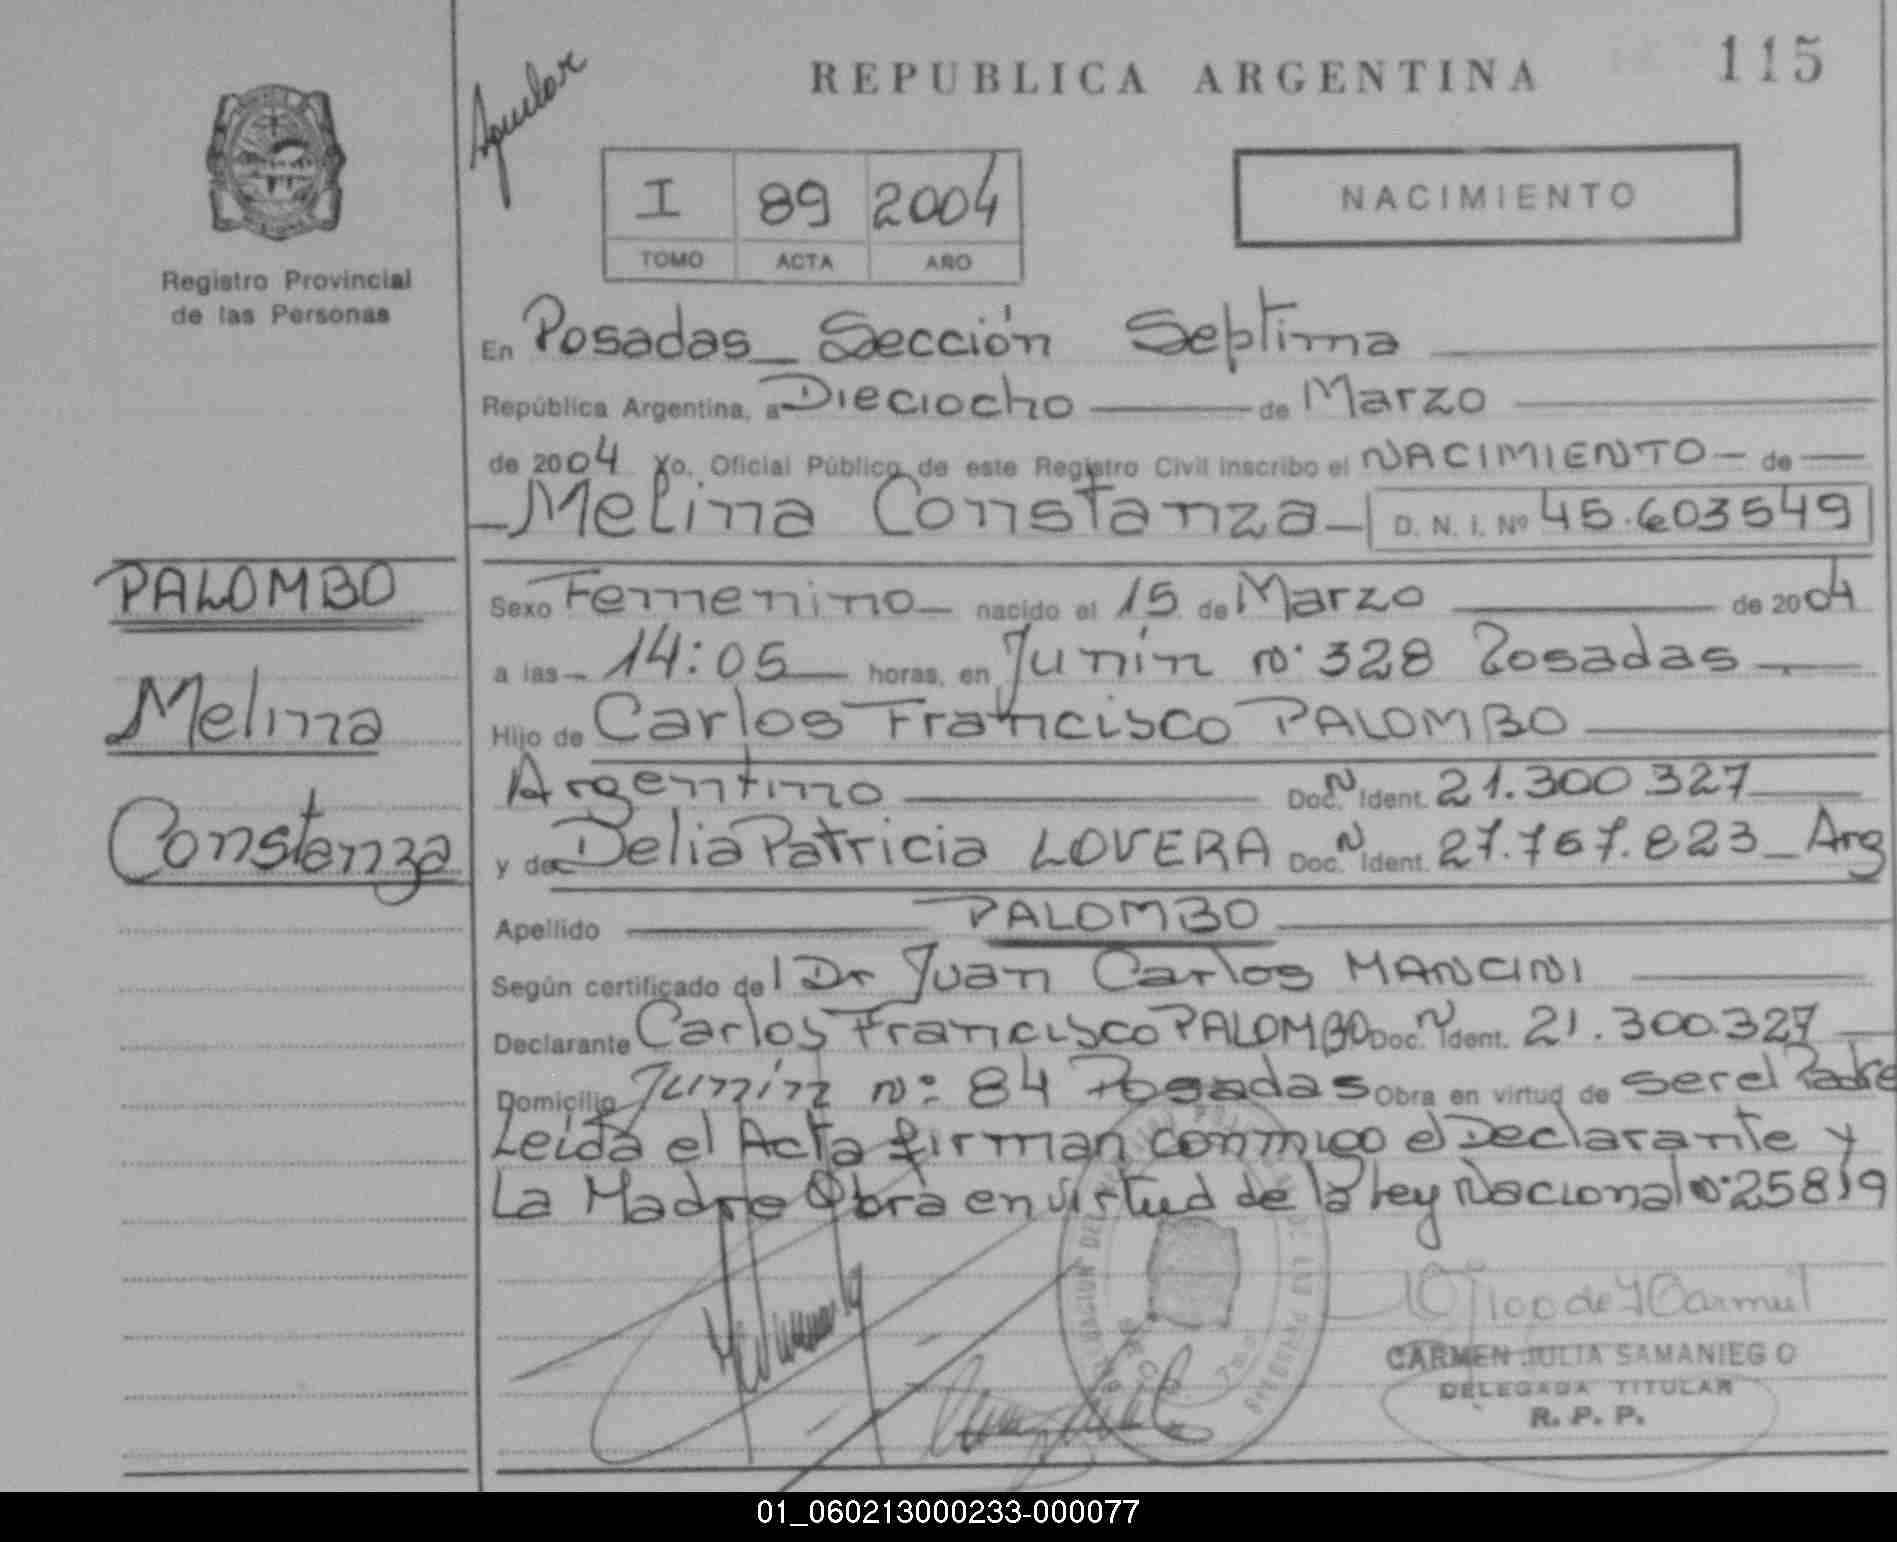 Aguilar
REPUBLICA ARGENTINA
115
I 89 2004
TOMO ACTA AÑO
NACIMIENTO
Registro Provincial
de las Personas
En Posadas_ Sección Septima
República Argentina, a Dieciocho de Marzo
de 2004 Yo, Oficial Público de este Registro Civil inscribo el NACIMIENTO de
Melina Constanza D. N. I. Nº 45.603549
PALOMBO
Melina
Constanza
Sexo Femenino nacido el 15 de Marzo de 2004
a las 14:05 horas, en Junín Nº 328 Posadas
Hijo de Carlos Francisco PALOMBO
Argentino Doc. N Ident. 21.300.327
y de Delia Patricia LOVERA Doc. N Ident. 27.767.823_ Arg
Apellido PALOMBO
Según certificado del Dr Juan Carlos MANCINI
Declarante Carlos Francisco PALOMBO Doc. N Ident. 21.300.327
Domicilio Junín Nº 84 Posadas Obra en virtud de ser el Padre
Leída el Acta firman conmigo el Declarante y
La Madre Obra en virtud de la ley Nacional Nº 25819
CARMEN JULIA SAMANIEGO
DELEGADA TITULAR
R. P. P.
01_060213000233-000077